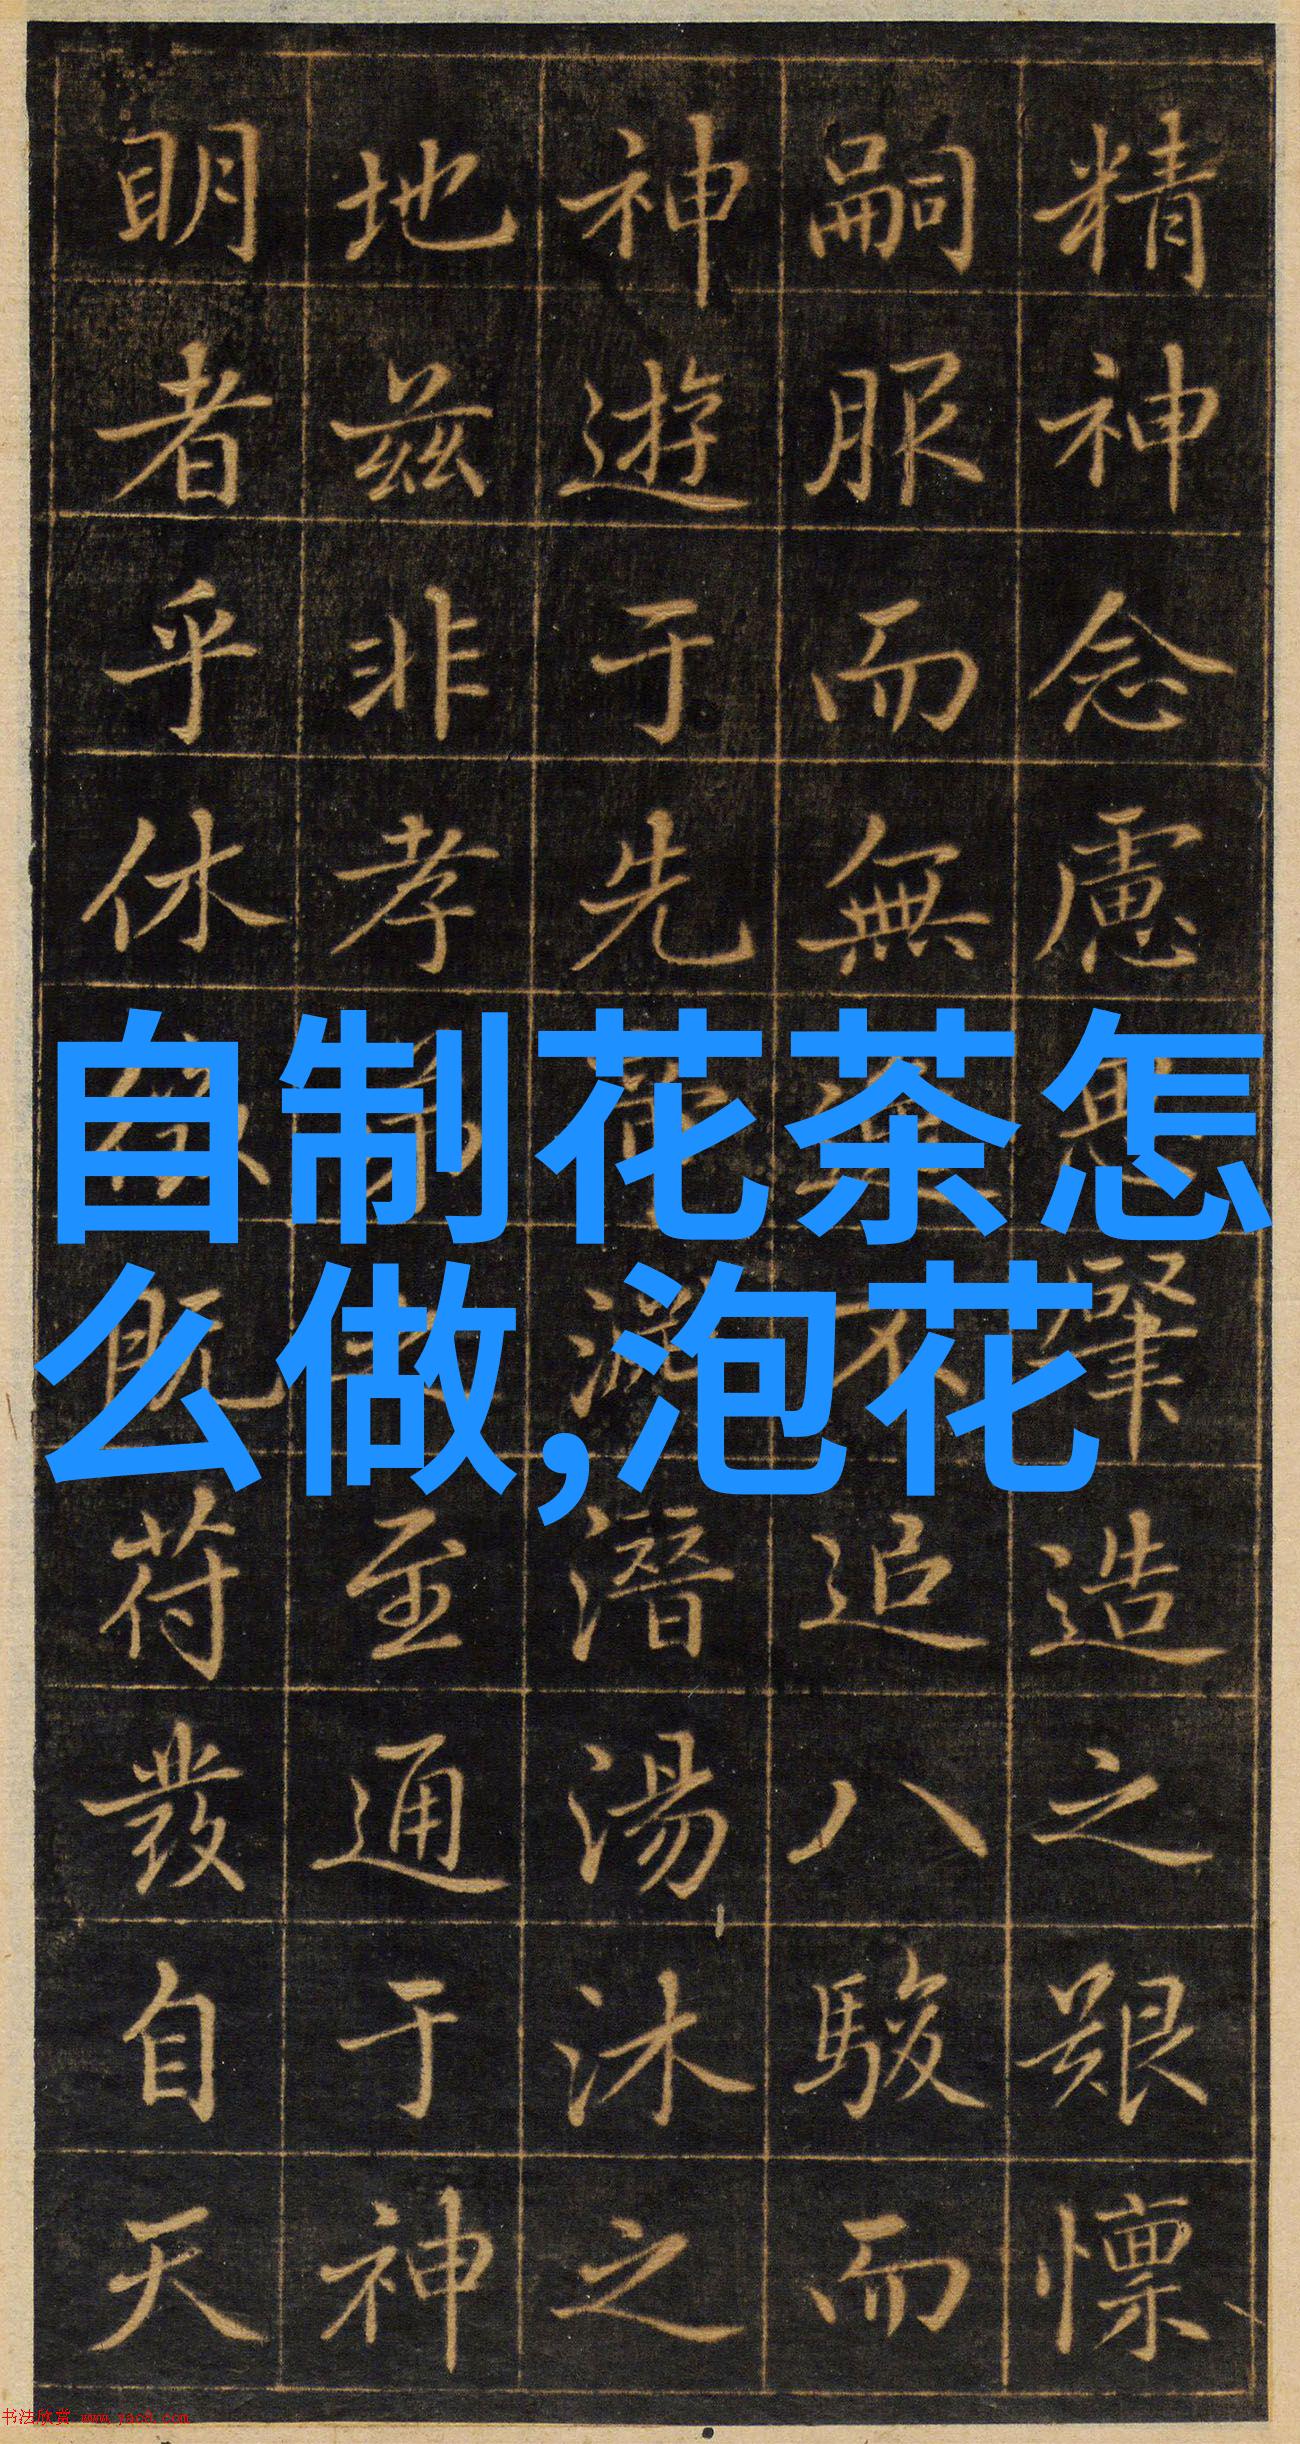 精神念慮無肇造之艱懍
嗣服而無不追八駿而
神遊于先潛湯沐之
地茲非孝至通于神
明者乎休徵既符發自天
自制花茶怎
么做,泡花
书法欣赏 www.yac8.com